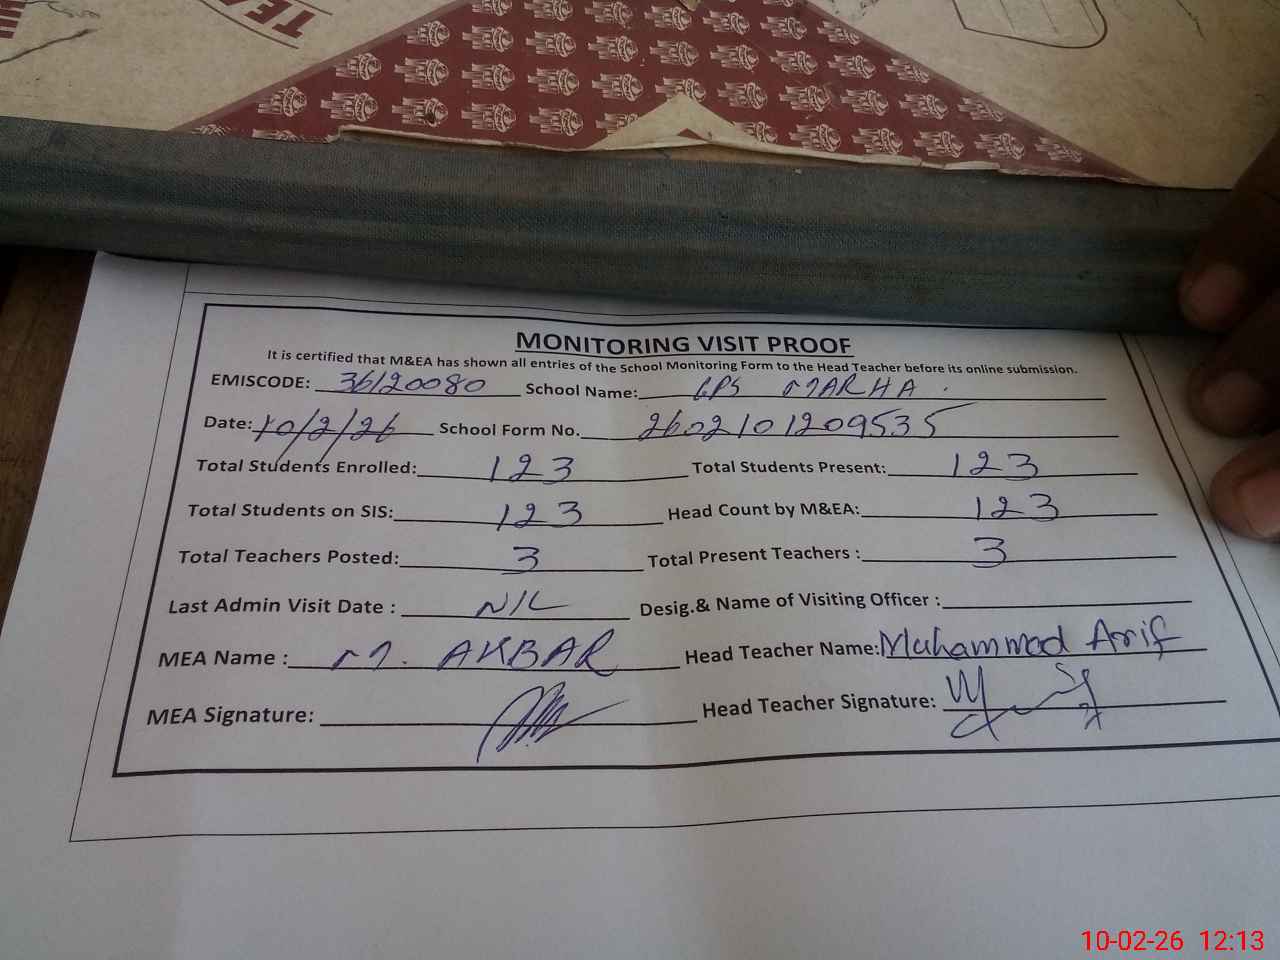 TEA
MONITORING VISIT PROOF
It is certified that M&EA has shown all entries of the School Monitoring Form to the Head Teacher before its online submission.
EMISCODE: 36120080 School Name: GPS MARHA
Date: 10/2/26 School Form No. 2602101209535
Total Students Enrolled: 123 Total Students Present: 123
Total Students on SIS: 123 Head Count by M&EA: 123
Total Teachers Posted: 3 Total Present Teachers : 3
Last Admin Visit Date : NIL Desig.& Name of Visiting Officer :
MEA Name : M. AKBAR Head Teacher Name: Muhammad Arif
MEA Signature: Head Teacher Signature:
10-02-26 12:13